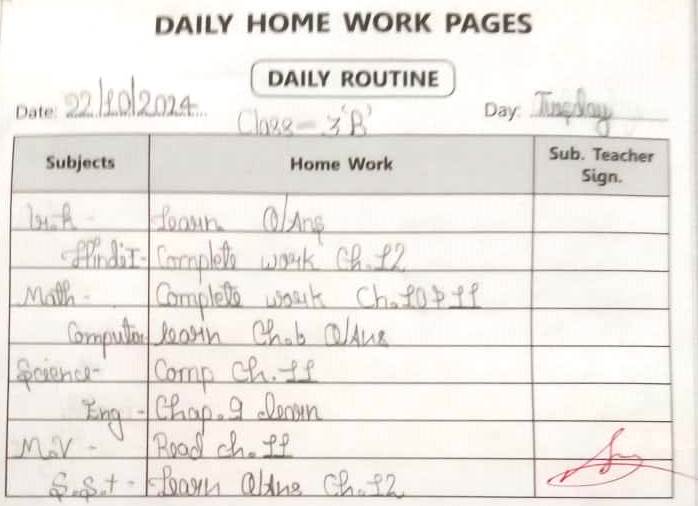 DAILY HOME WORK PAGES
DAILY ROUTINE
Date: 22/10/2024 Day: Tuesday
Class - 3'B'
Subjects Home Work Sub. Teacher Sign.
G.K - learn Q/Ans
Hindi I - Complete work Ch. 12
Math - Complete work Ch. 10 & 11
Computer learn Ch. 6 Q/Ans
Science - Comp Ch. 11
Eng - Chap. 9 learn
M.V - Read ch. 11
S.S.t - learn Q/Ans Ch. 12